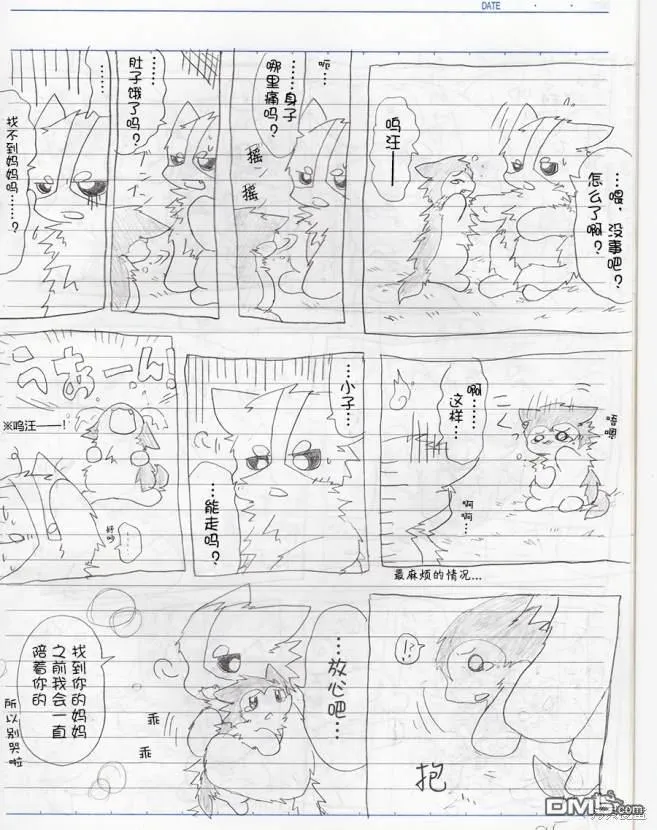 DATE
…喂，没事吧？
怎么了啊？
呜汪——
呃…
……身子
哪里痛吗？
摇
摇
……
肚子饿了吗？
ブンブン
……
找不到妈妈吗……？
唔
嗯
こく
啊………
这样…
啊
啊…
最麻烦的情况…
…小子…
…能走吗？
うあぁーん!
※呜汪——！
好吵
……
!?
抱
…放心吧…
乖
乖
找到你的妈妈
之前我会一直
陪着你的
所以别哭啦
DM5